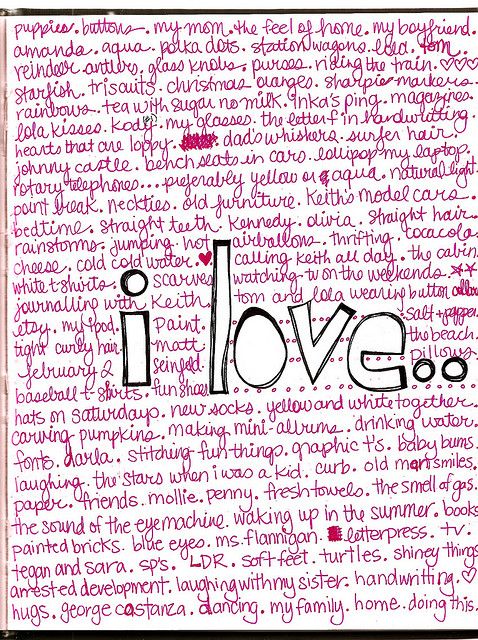 puppies. buttons. my mom. the feel of home. my boyfriend.
amanda. aqua. polka dots. stationwagons. lola. tom.
reindeer antlers. glass knobs. purses. riding the train. ♡♡♡
starfish. triscuits. christmas oranges. sharpie markers.
rainbows. tea with sugar no milk. inka's ping. magazines.
lola kisses. kody. my glasses. the letter f in handwriting.
hearts that are loppy. dad's whiskers. surfer hair.
johnny castle. bench seats in cars. lollipop my laptop.
rotary telephones... preferably yellow or aqua. natural light.
point break. neckties. old furniture. Keith's model cars.
bedtime. straight teeth. Kennedy. olivia. straight hair.
rainstorms. jumping. hot airballons. thrifting. cocacola
cheese. cold cold water. ♥ calling keith all day. the cabin.
white t-shirts. scarves watching tv on the weekends. ★★
journalling with Keith tom and lola wearing button
etsy. my food. paint. salt + pepper
tight curly hair matt the beach.
february 2 seinfeld pillows
i love..
baseball t-shirts. fun shoes
hats on saturdays. new socks. yellow and white together.
carving pumpkins. making mini albums. drinking water.
fonts. darla. stitching fun things. graphic t's. baby bums.
laughing. the stars when i was a kid. curb. old man smiles.
paper. friends. mollie. penny. fresh towels. the smell of gas.
the sound of the eyemachine. waking up in the summer. books
painted bricks. blue eyes. ms. flannigan. letterpress. tv.
tegan and sara. sp's. LDR. soft feet. turtles. shiney things
arrested development. laughing with my sister. handwriting. ♡
hugs. george costanza. dancing. my family. home. doing this.